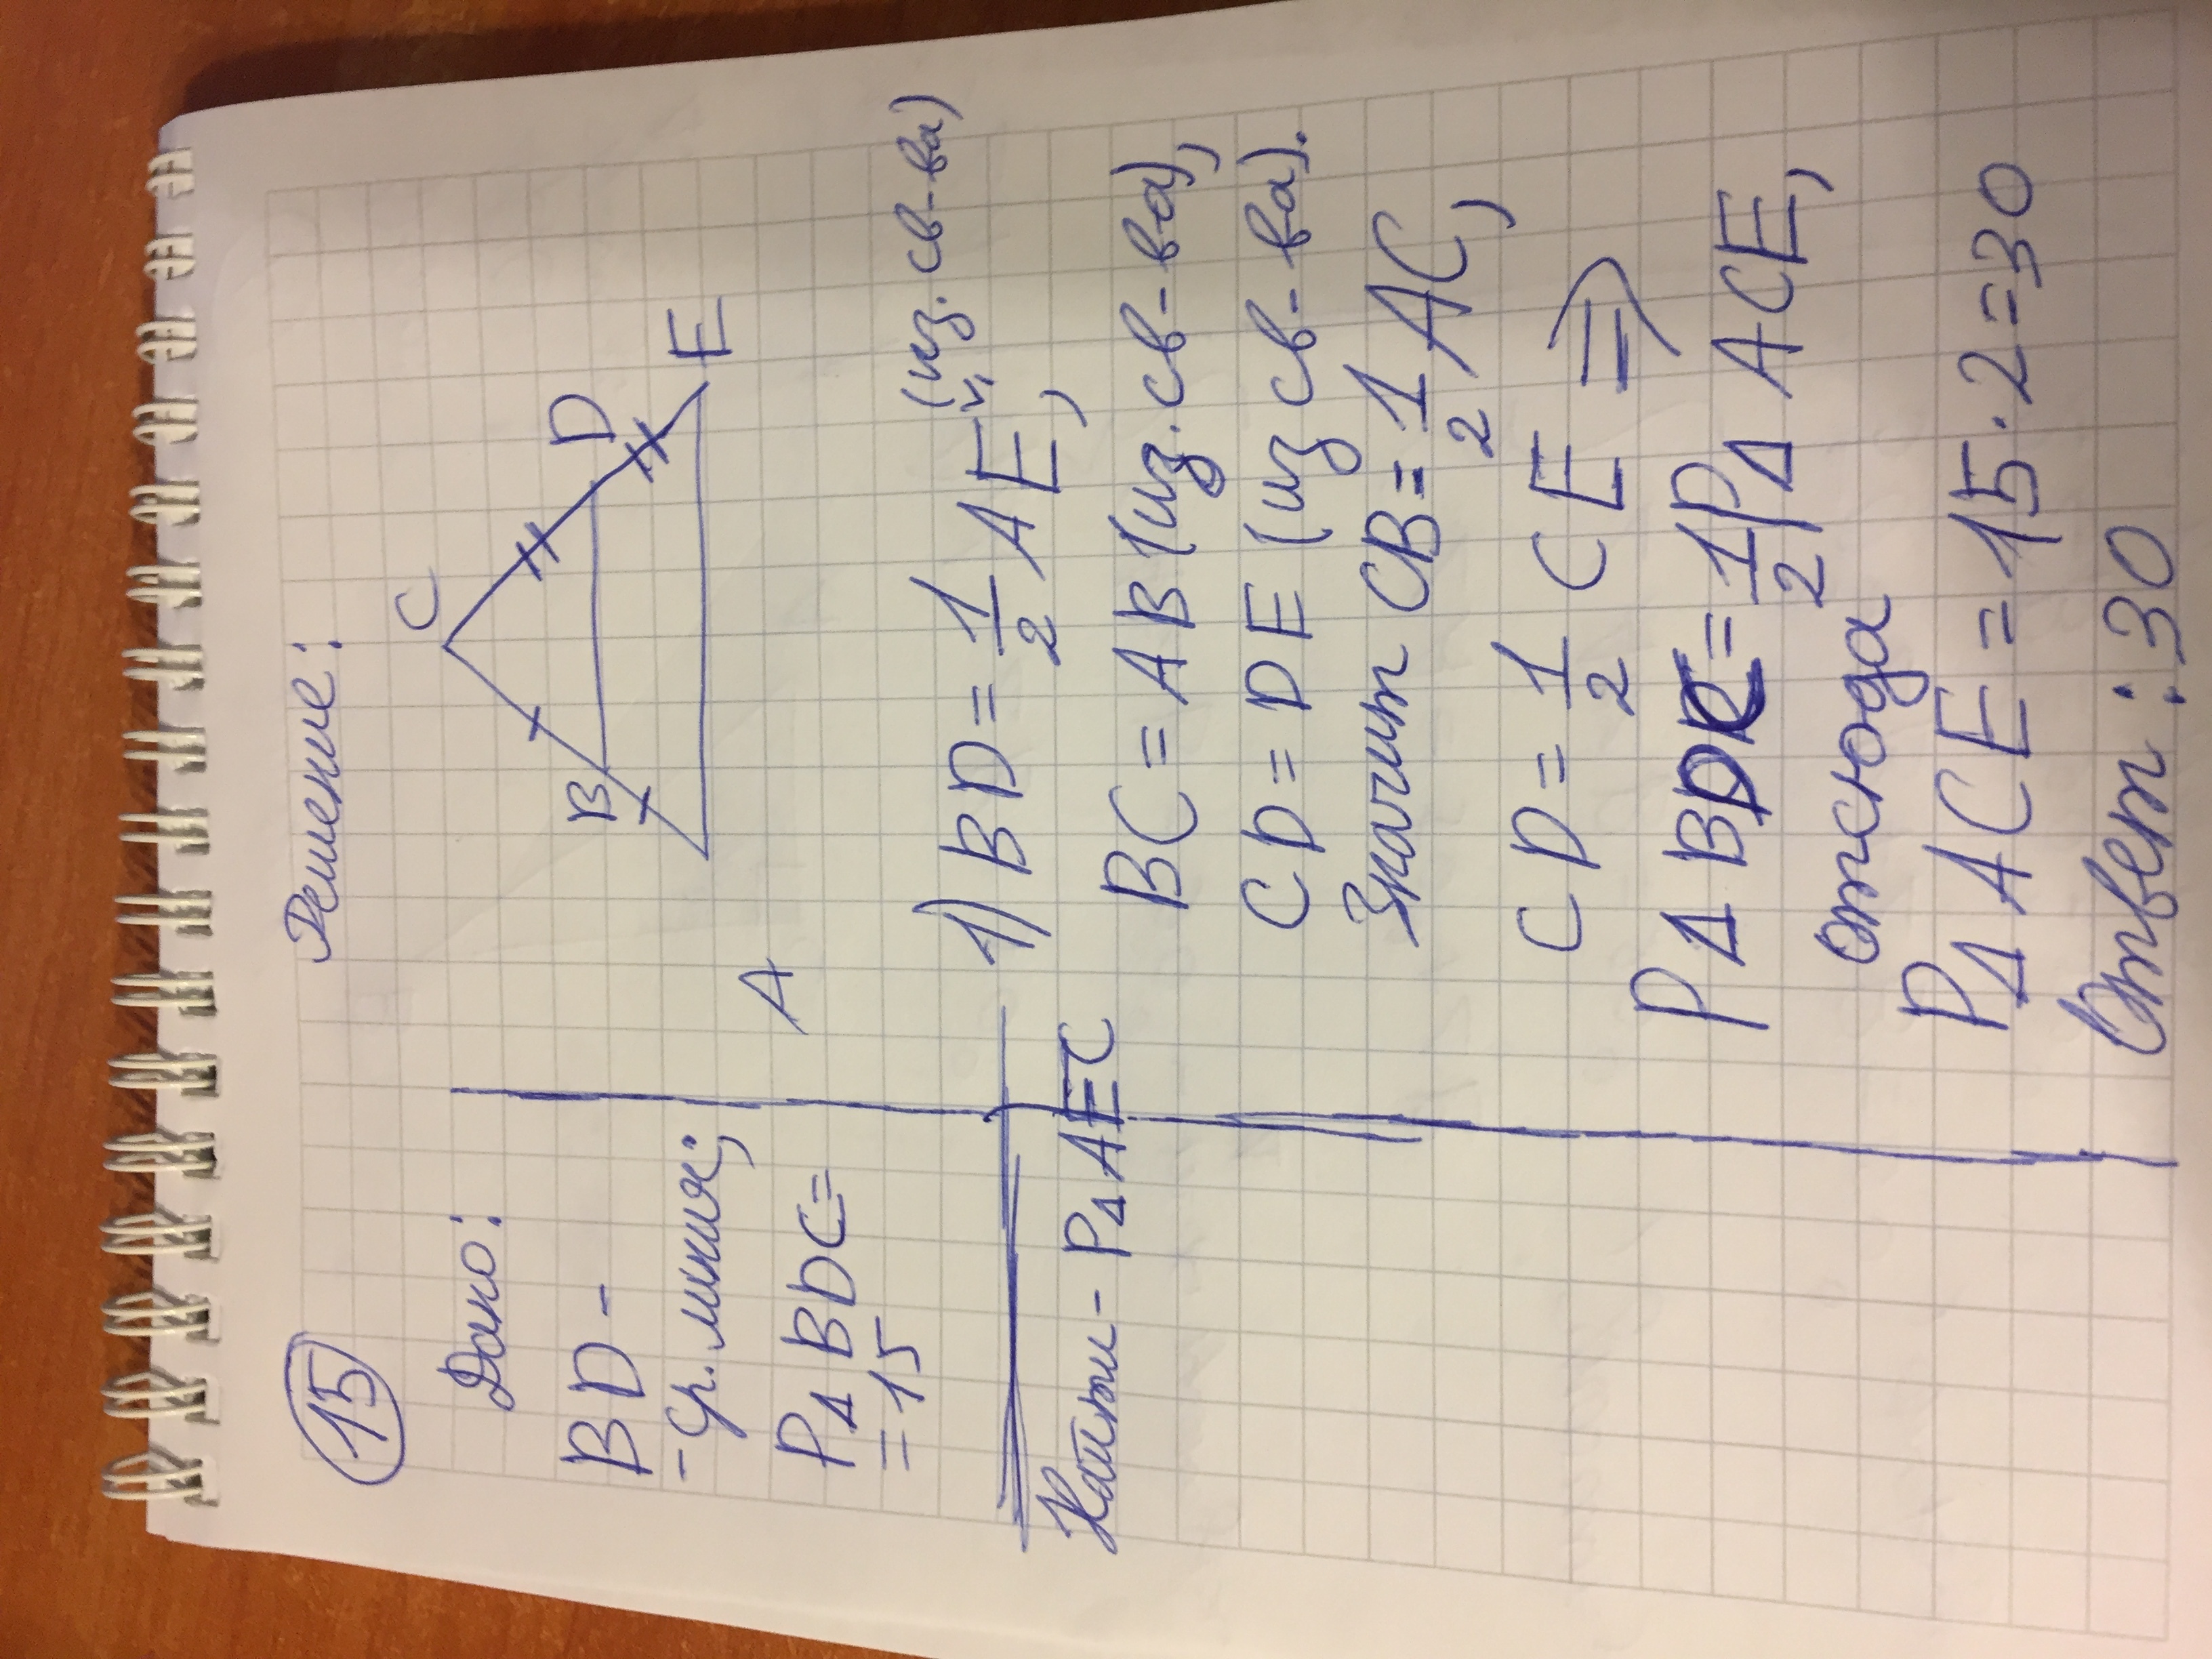 15
Дано:
BD -
- ср. линия;
P△BDC=
=15
Найти - P△AEC
Решение:
C
B
D
E
A
1) BD = 1/2 AE, (из. св-ва)
BC = AB (из. св-ва),
CD = DE (из св-ва).
Значит CB = 1/2 AC,
CD = 1/2 CE ⇒
P△BDC = 1/2 P△ACE,
отсюда
P△ACE = 15 · 2 = 30
Ответ: 30